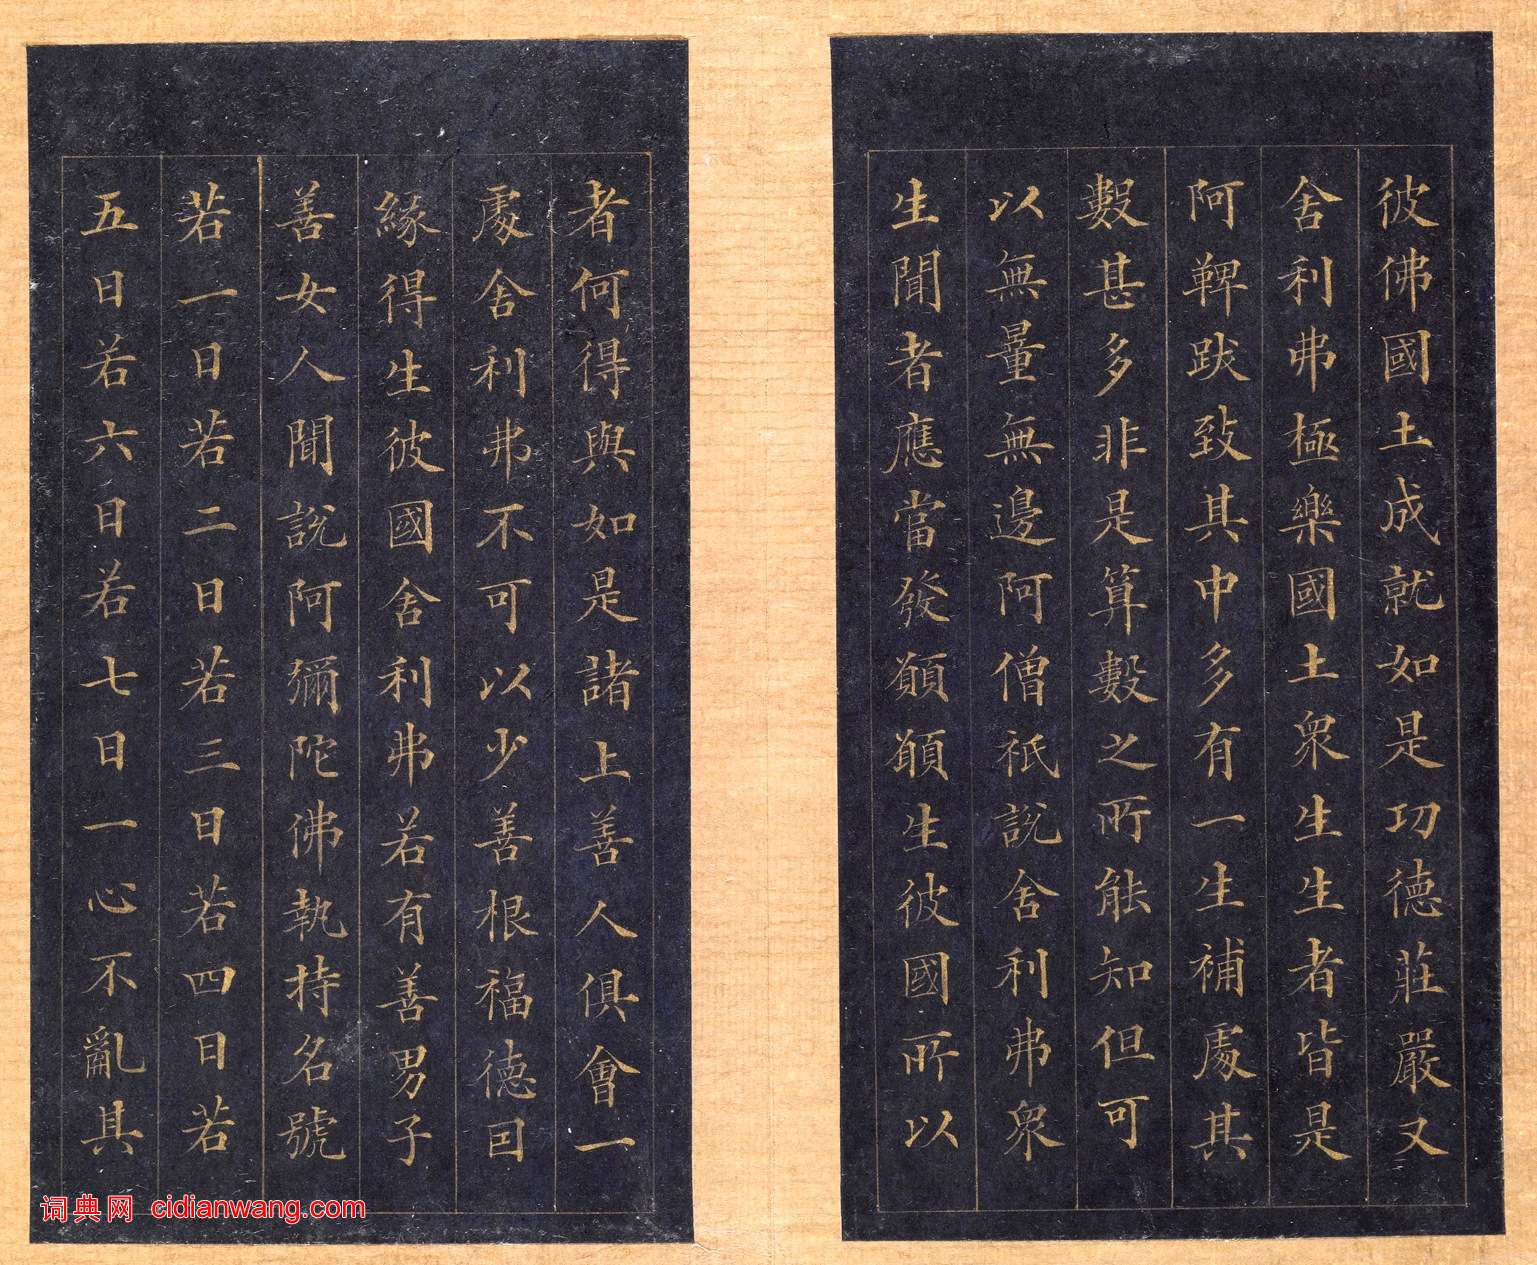 彼佛國土成就如是功德莊嚴又
舍利弗極樂國土眾生生者皆是
阿鞞跋致其中多有一生補處其
數甚多非是算數之所能知但可
以無量無邊阿僧祇說舍利弗眾
生聞者應當發願願生彼國所以
者何得與如是諸上善人俱會一
處舍利弗不可以少善根福德因
緣得生彼國舍利弗若有善男子
善女人聞說阿彌陀佛執持名號
若一日若二日若三日若四日若
五日若六日若七日一心不亂其
词典网 cidianwang.com